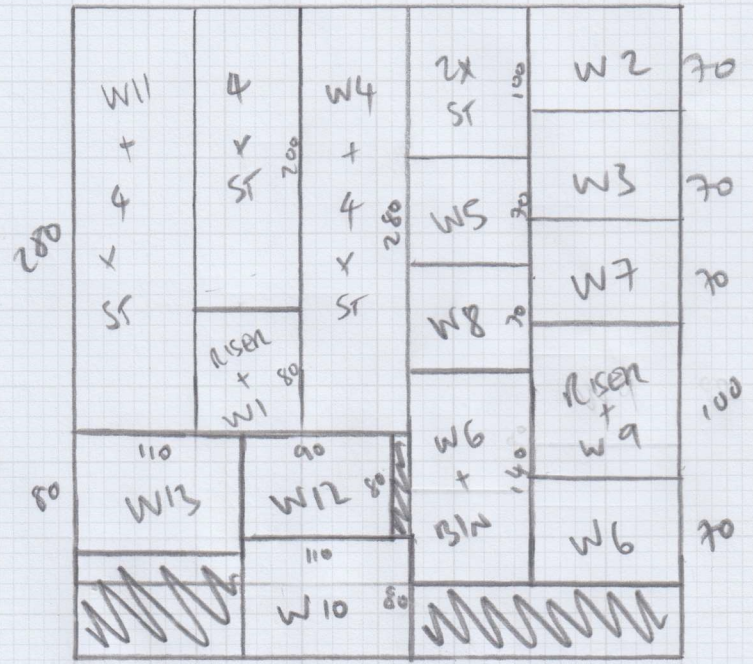 W11
+
4
x
ST
280
4
x
ST
200
RISER
+
W1
80
W4
+
4
x
ST
280
2X
ST
100
W5
70
W8
70
W6
+
BIN
140
W2
70
W3
70
W7
70
RISER
+
W9
100
W6
70
110
W13
80
90
W12
80
110
W10
80